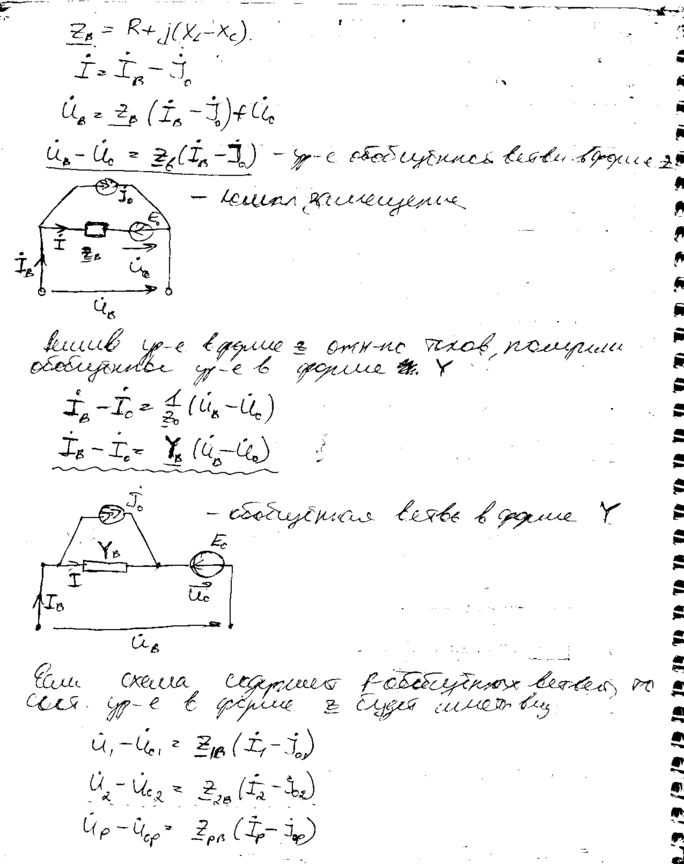 Z_В = R+j(X_L-X_C).
İ = İ_В - J̇_0
U̇_В = Z_В (İ_В - J̇_0) + U̇_0
U̇_В - U̇_0 = Z_В (İ_В - J̇_0) - ур-е обобщённой ветви в форме Z
J̇_0
- схема замещения
İ Z_В E_0
İ_В U̇_0
U̇_В
Решив ур-е в форме Z отн-но токов, получили
обобщенное ур-е в форме Y
İ_В - İ_0 = 1/Z_0 (U̇_В - U̇_0)
İ_В - İ_0 = Y_В (U̇_В - U̇_0)
J̇_0
- обобщённая ветвь в форме Y
Y_В E_0
İ U̇_0
I_В
U̇_В
Если схема содержит p обобщённых ветвей, то
сист. ур-е в форме Z будет иметь вид
U̇_1 - U̇_01 = Z_1В (İ_1 - J̇_01)
U̇_2 - U̇_02 = Z_2В (İ_2 - J̇_02)
U̇_p - U̇_0p = Z_pВ (İ_p - J̇_0p)